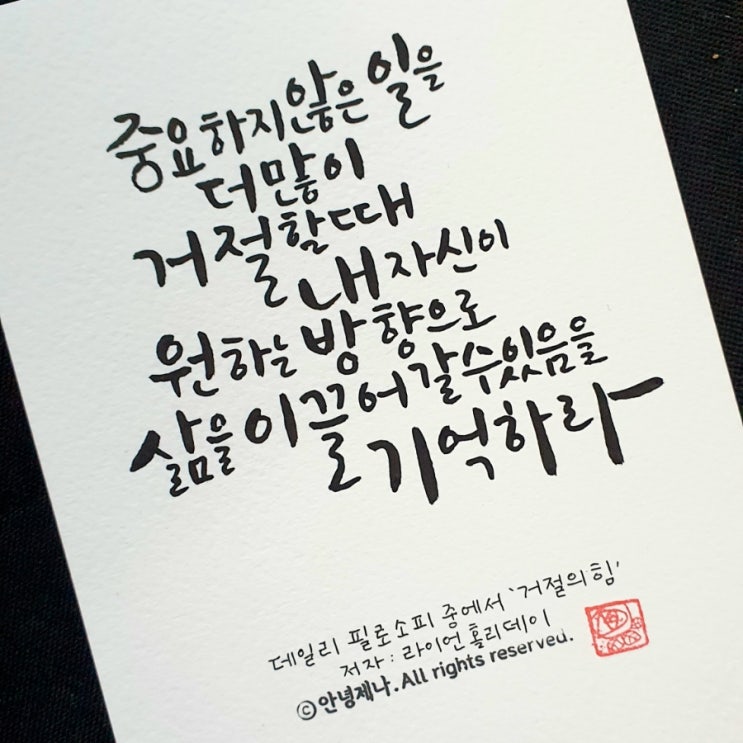 중요하지않은 일을
더많이
거절할때
내 자신이
원하는 방향으로
삶을 이끌어 갈수있음을
기억하라
데일리 필로소피 중에서 '거절의 힘'
저자 : 라이언 홀리데이
©안녕제나. All rights reserved.